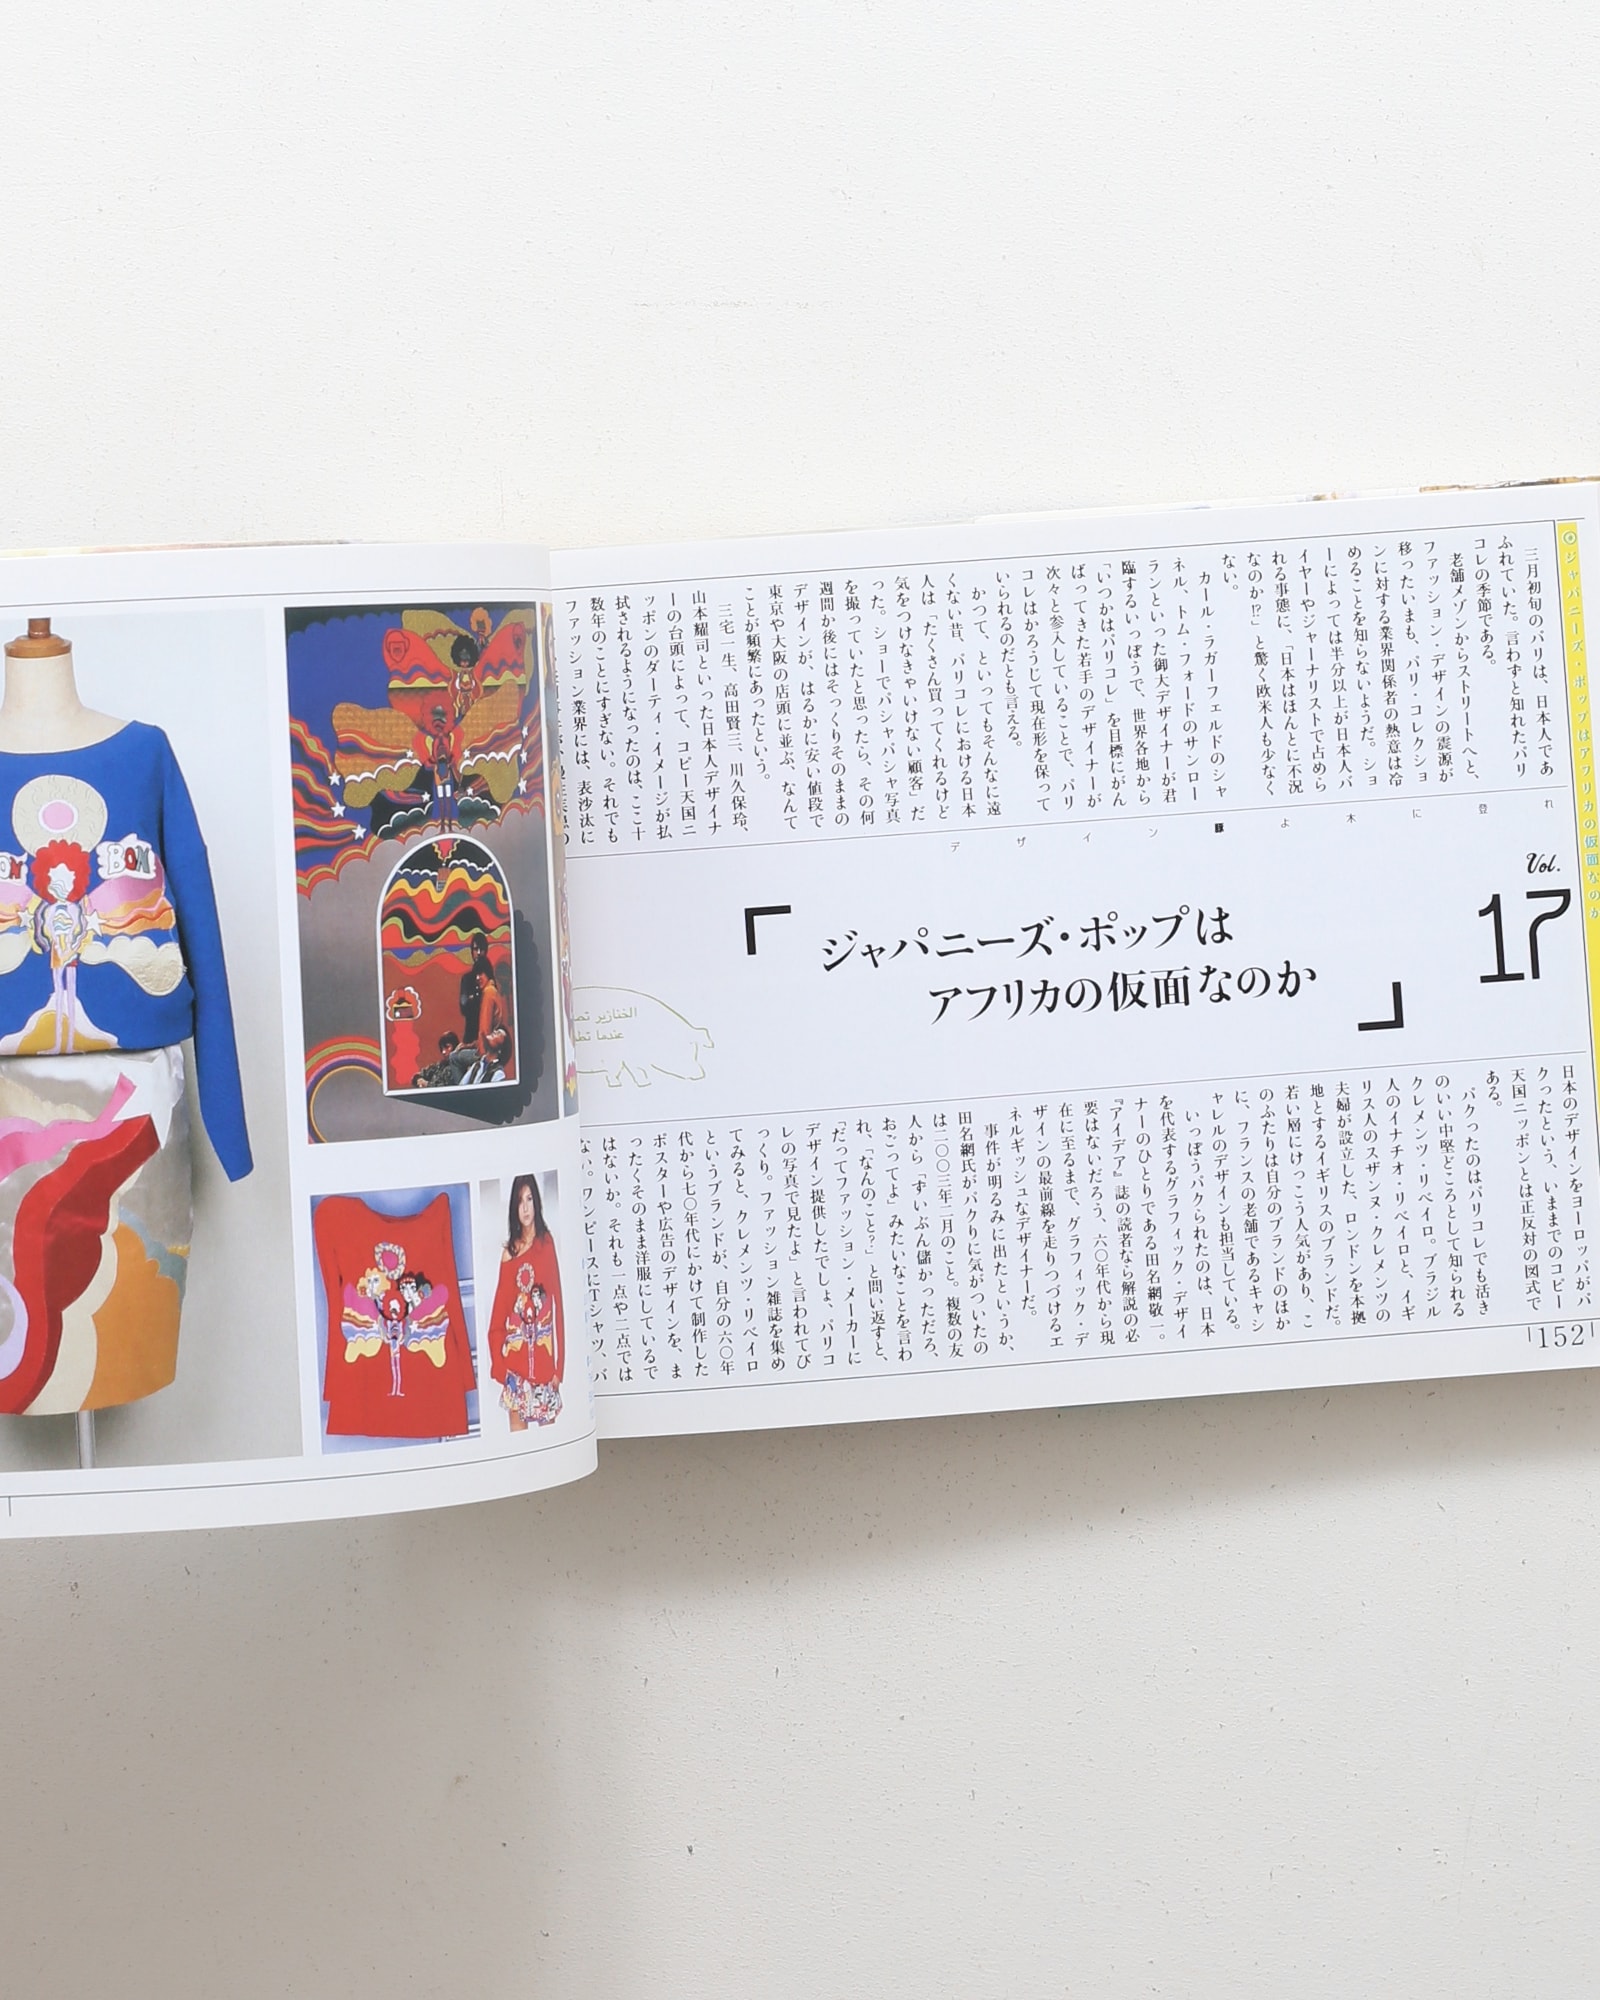 ◎ジャパニーズ・ポップはアフリカの仮面なのか
三月初旬のパリは、日本人であ
ふれていた。言わずと知れたパリ
コレの季節である。
老舗メゾンからストリートへと、
ファッション・デザインの震源が
移ったいまも、パリ・コレクショ
ンに対する業界関係者の熱意は冷
めることを知らないようだ。ショ
ーによっては半分以上が日本人バ
イヤーやジャーナリストで占めら
れる事態に、「日本はほんとに不況
なのか!?」と驚く欧米人も少なく
ない。
カール・ラガーフェルドのシャ
ネル、トム・フォードのサンロー
ランといった御大デザイナーが君
臨するいっぽうで、世界各地から
「いつかはパリコレ」を目標にがん
ばってきた若手のデザイナーが
次々と参入していることで、パリ
コレはかろうじて現在形を保って
いられるのだとも言える。
かつて、といってもそんなに遠
くない昔、パリコレにおける日本
人は「たくさん買ってくれるけど
気をつけなきゃいけない顧客」だ
った。ショーでパシャパシャ写真
を撮っていたと思ったら、その何
週間か後にはそっくりそのままの
デザインが、はるかに安い値段で
東京や大阪の店頭に並ぶ、なんて
ことが頻繁にあったという。
三宅一生、高田賢三、川久保玲、
山本耀司といった日本人デザイナ
ーの台頭によって、コピー天国ニ
ッポンのダーティ・イメージが払
拭されるようになったのは、ここ十
数年のことにすぎない。それでも
ファッション業界には、表沙汰に
デザイン豚よ木に登れ
Vol.
17
「ジャパニーズ・ポップは
アフリカの仮面なのか」
الخنازير
عندما
日本のデザインをヨーロッパがパ
クったという、いままでのコピー
天国ニッポンとは正反対の図式で
ある。
パクったのはパリコレでも活き
のいい中堅どころとして知られる
クレメンツ・リベイロ。ブラジル
人のイナチオ・リベイロと、イギ
リス人のスザンヌ・クレメンツの
夫婦が設立した、ロンドンを本拠
地とするイギリスのブランドだ。
若い層にけっこう人気があり、こ
のふたりは自分のブランドのほか
に、フランスの老舗であるキャシ
ャレルのデザインも担当している。
いっぽうパクられたのは、日本
を代表するグラフィック・デザイ
ナーのひとりである田名網敬一。
『アイデア』誌の読者なら解説の必
要はないだろう、六〇年代から現
在に至るまで、グラフィック・デ
ザインの最前線を走りつづけるエ
ネルギッシュなデザイナーだ。
事件が明るみに出たというか、
田名網氏がパクりに気がついたの
は二〇〇三年二月のこと。複数の友
人から「ずいぶん儲かっただろ、
おごってよ」みたいなことを言わ
れ、「なんのこと?」と問い返すと、
「だってファッション・メーカーに
デザイン提供したでしょ、パリコ
レの写真で見たよ」と言われてび
っくり。ファッション雑誌を集め
てみると、クレメンツ・リベイロ
というブランドが、自分の六〇年
代から七〇年代にかけて制作した
ポスターや広告のデザインを、ま
ったくそのまま洋服にしているで
はないか。それも一点や二点では
ない。ワンピースにTシャツ、パ
152
BON